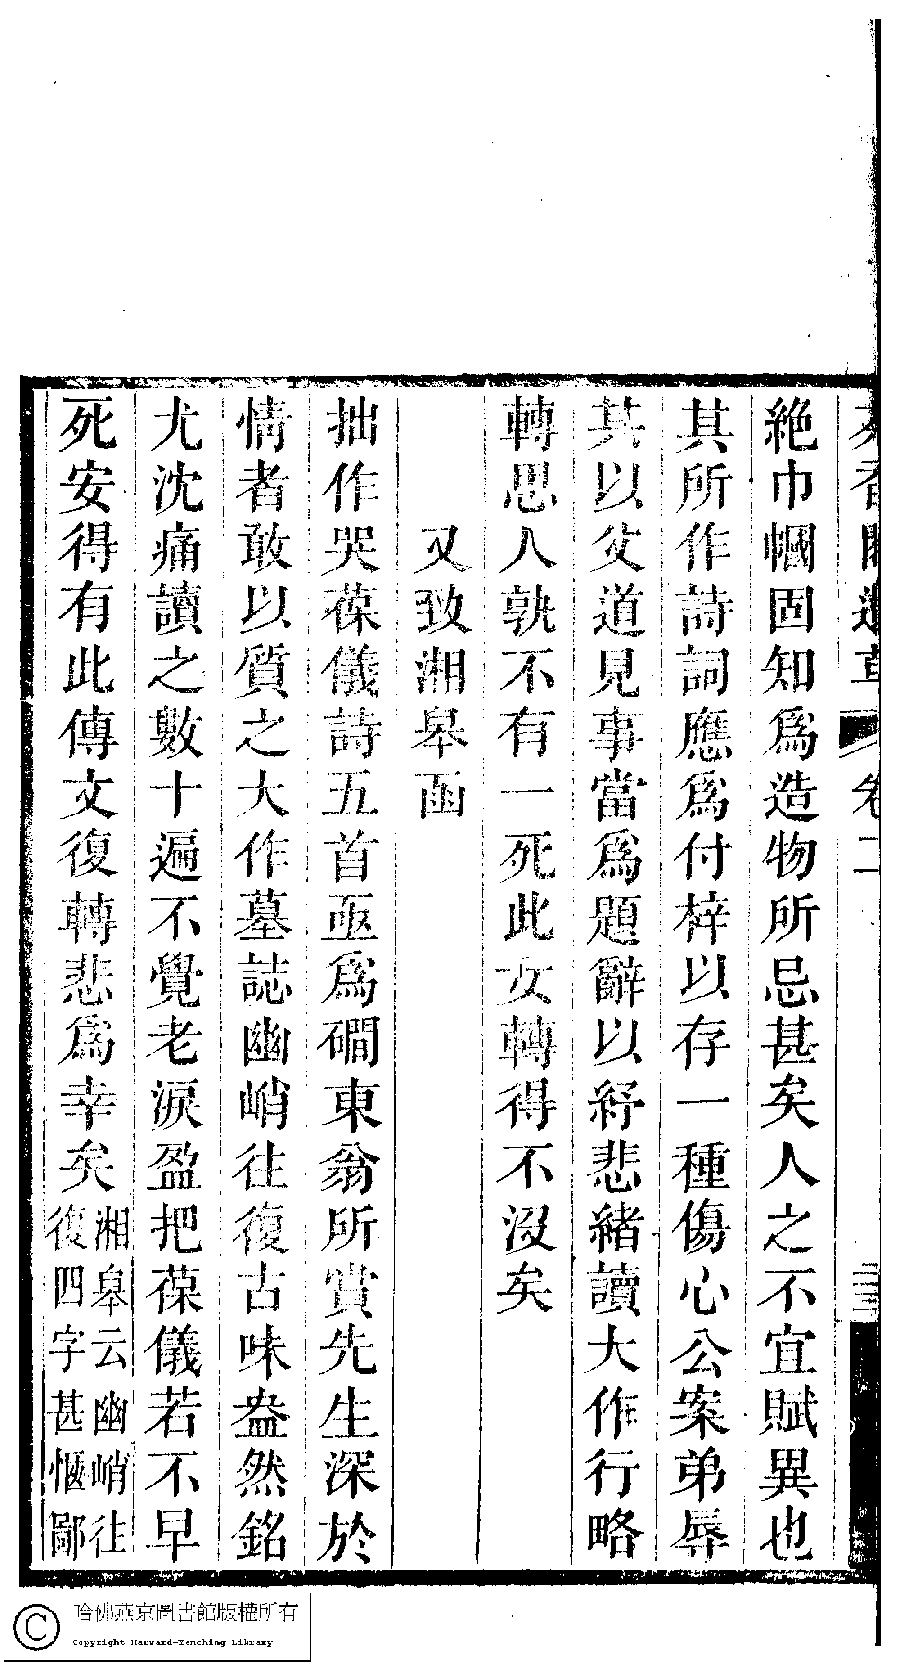 絶巾幗固知爲造物所忌甚矣人之不宜賦異也
其所作詩詞應爲付梓以存一種傷心公案弟辱
其以父道見事當爲題辭以紓悲緒讀大作行略
轉思人孰不有一死此女轉得不沒矣
又致湘皋函
拙作哭葆儀詩五首亟爲磵東翁所賞先生深於
情者敢以質之大作墓誌幽峭往復古味盎然銘
尤沈痛讀之數十遍不覺老淚盈把葆儀若不早
死安得有此傳文復轉悲爲幸矣
湘皋云幽峭往
復四字甚愜鄙
卷二
哈佛燕京圖書館版權所有
Copyright Harvard-Yenching Library